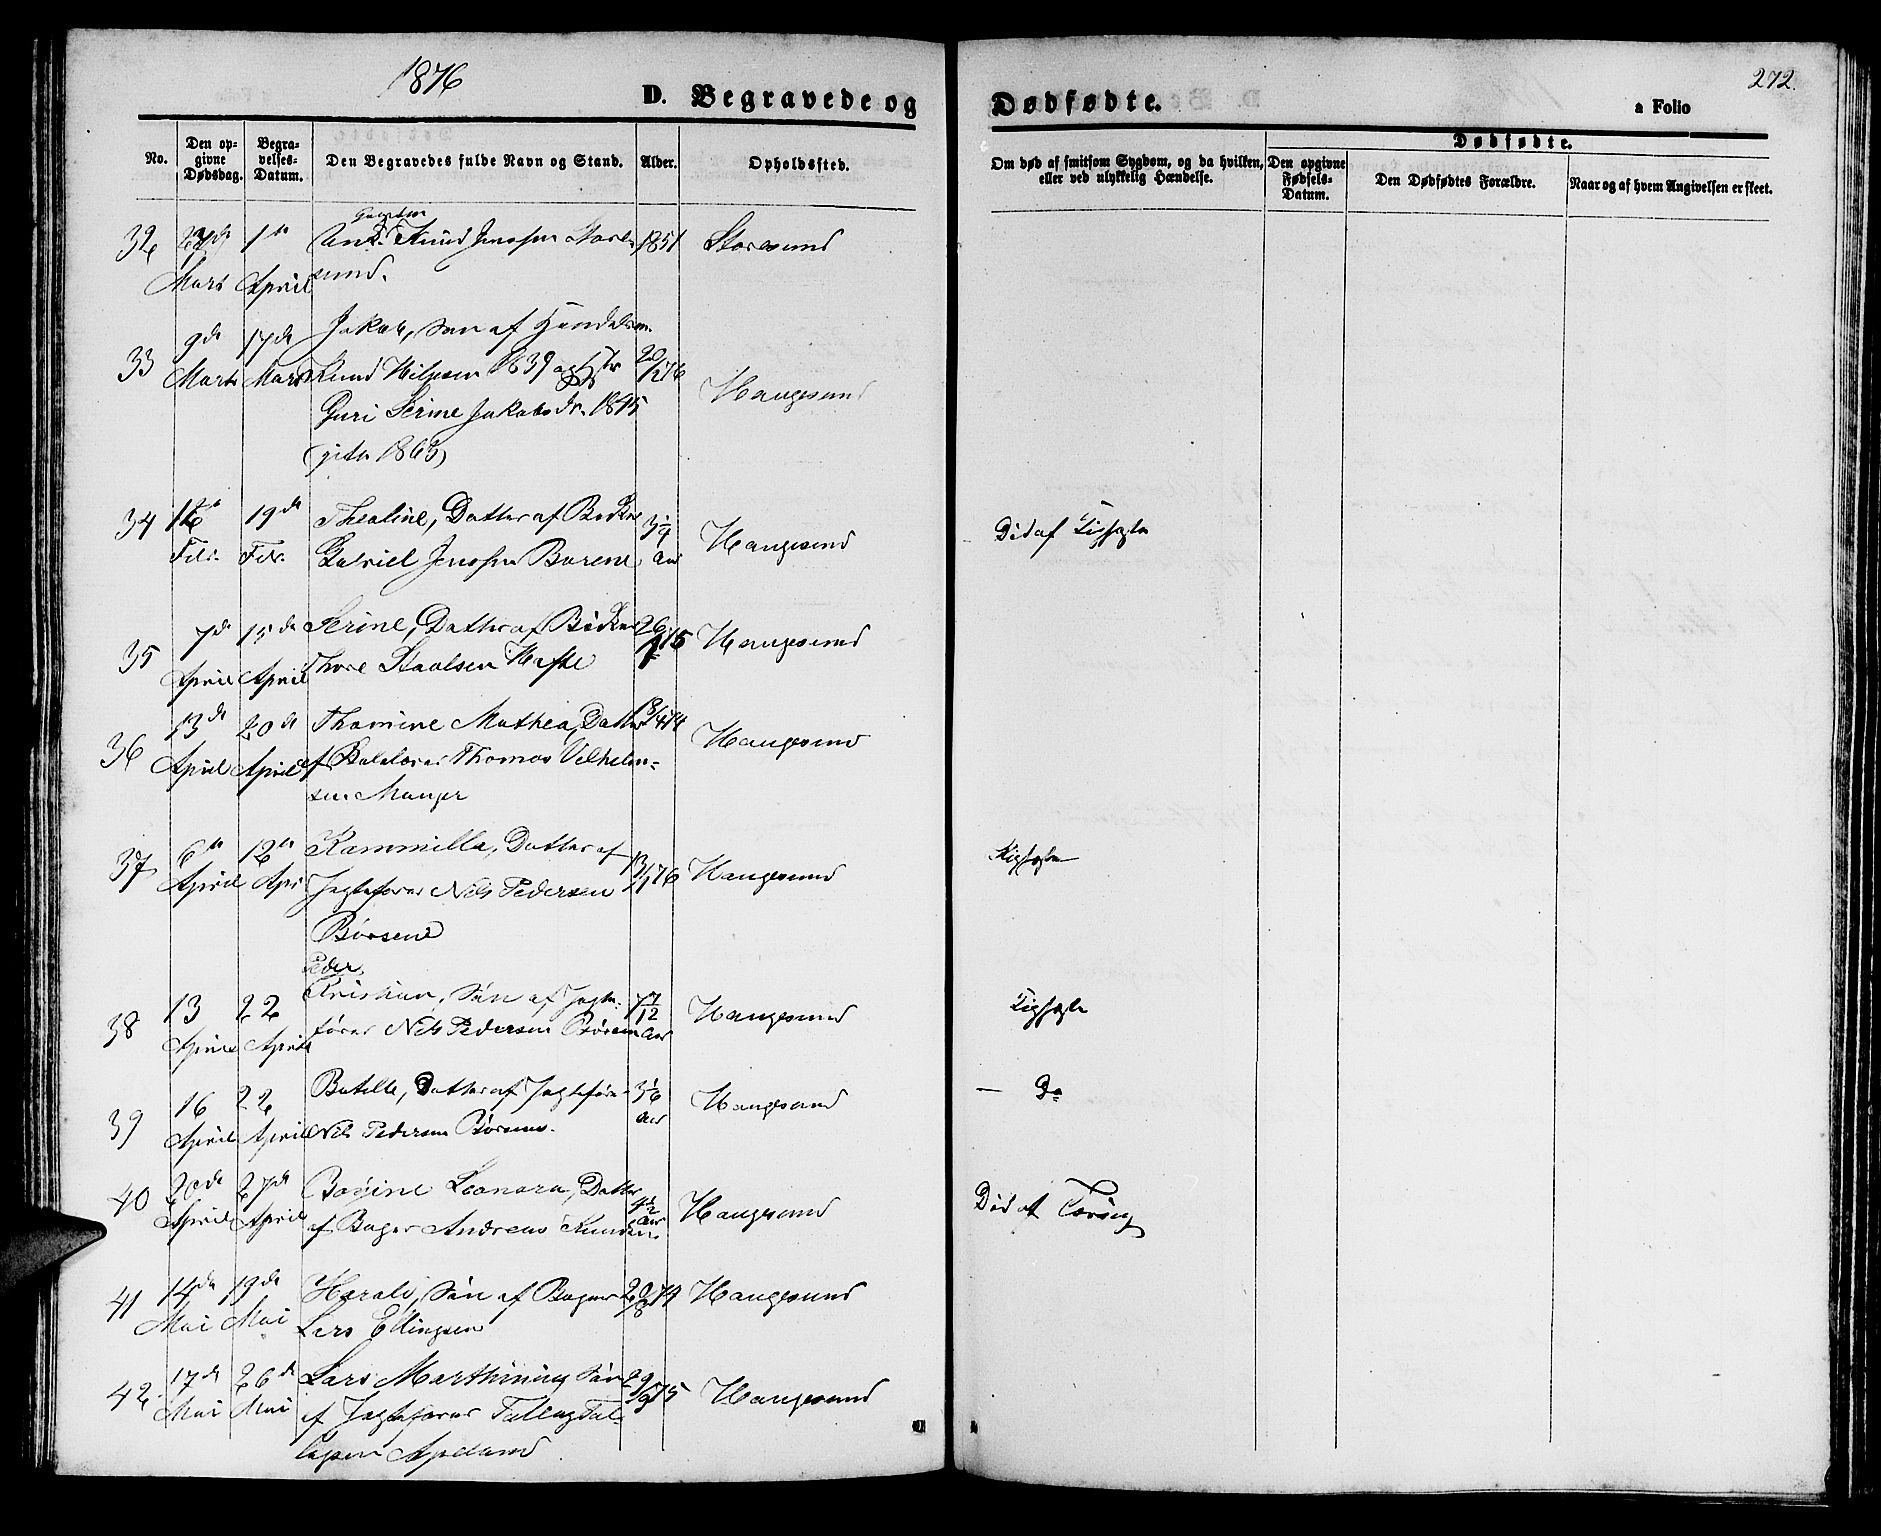 1876
D. Begravede og
Dødfødte.
272.
a Folio
No.
Den op-
givne
Dødsdag.
Begra-
velses-
Datum.
Den Begravedes fulde Navn og Stand.
Alder.
Opholdssted.
Om død af smitsom Sygdom, og da hvilken,
eller ved ulykkelig Hændelse.
Dødfødte.
Den opgivne
Fødsels-
Datum.
Den Dødfødtes Forældre.
Naar og af hvem Angivelsen er skeet.
32
Mars
1ste
April
Knud Jensen Store
sund.
1851
Storesund
33
9de
Marts
17de
Marts
Jakob, Søn af
Knud 1839
Guri Serine Jakobsdr. 1845
(gifte 1863)
20/1 76
Haugesund
34
Febr.
19de
Febr.
Thealine, Datter af Bødker
Gabriel Jensen
3 1/4
Aar
Haugesund
Død af
35
7de
April
15de
April
Serine, Datter af Bødker
Thore
26
75
Haugesund
36
13de
April
20de
April
Thomine Mathea, Datter
af Thomas Vilhelm-
sen Manger
74
Haugesund
37
6te
April
12te
Apr
Kammilla, Datter af
Jagtefører Nils Pedersen
Børsene
13/1 76
Haugesund
38
13
April
22
April
Peder
Kristian, Søn af Jagte-
fører Nils Pedersen Børsene
7 7/12
Aar
Haugesund
39
16
April
22
April
Botille, Datter af Jagtefører
Nils Pedersen Børsene.
3 1/6
Aar
Haugesund
— Do
40
20de
April
27de
April
Bogine Leonora, Datter
af Bager Andreas Knudsen.
4 1/2
Aar
Haugesund
Død af
41
14de
Mai
19de
Mai
Harald, Søn af Bager
Lars Ellingsen
20/8 74
Haugesund
42
17de
Mai
26de
Mai
Lars Marthinius Søn
af Jagtefører Tallag Tal-
lagsen Apeland
29/9 75
Haugesund